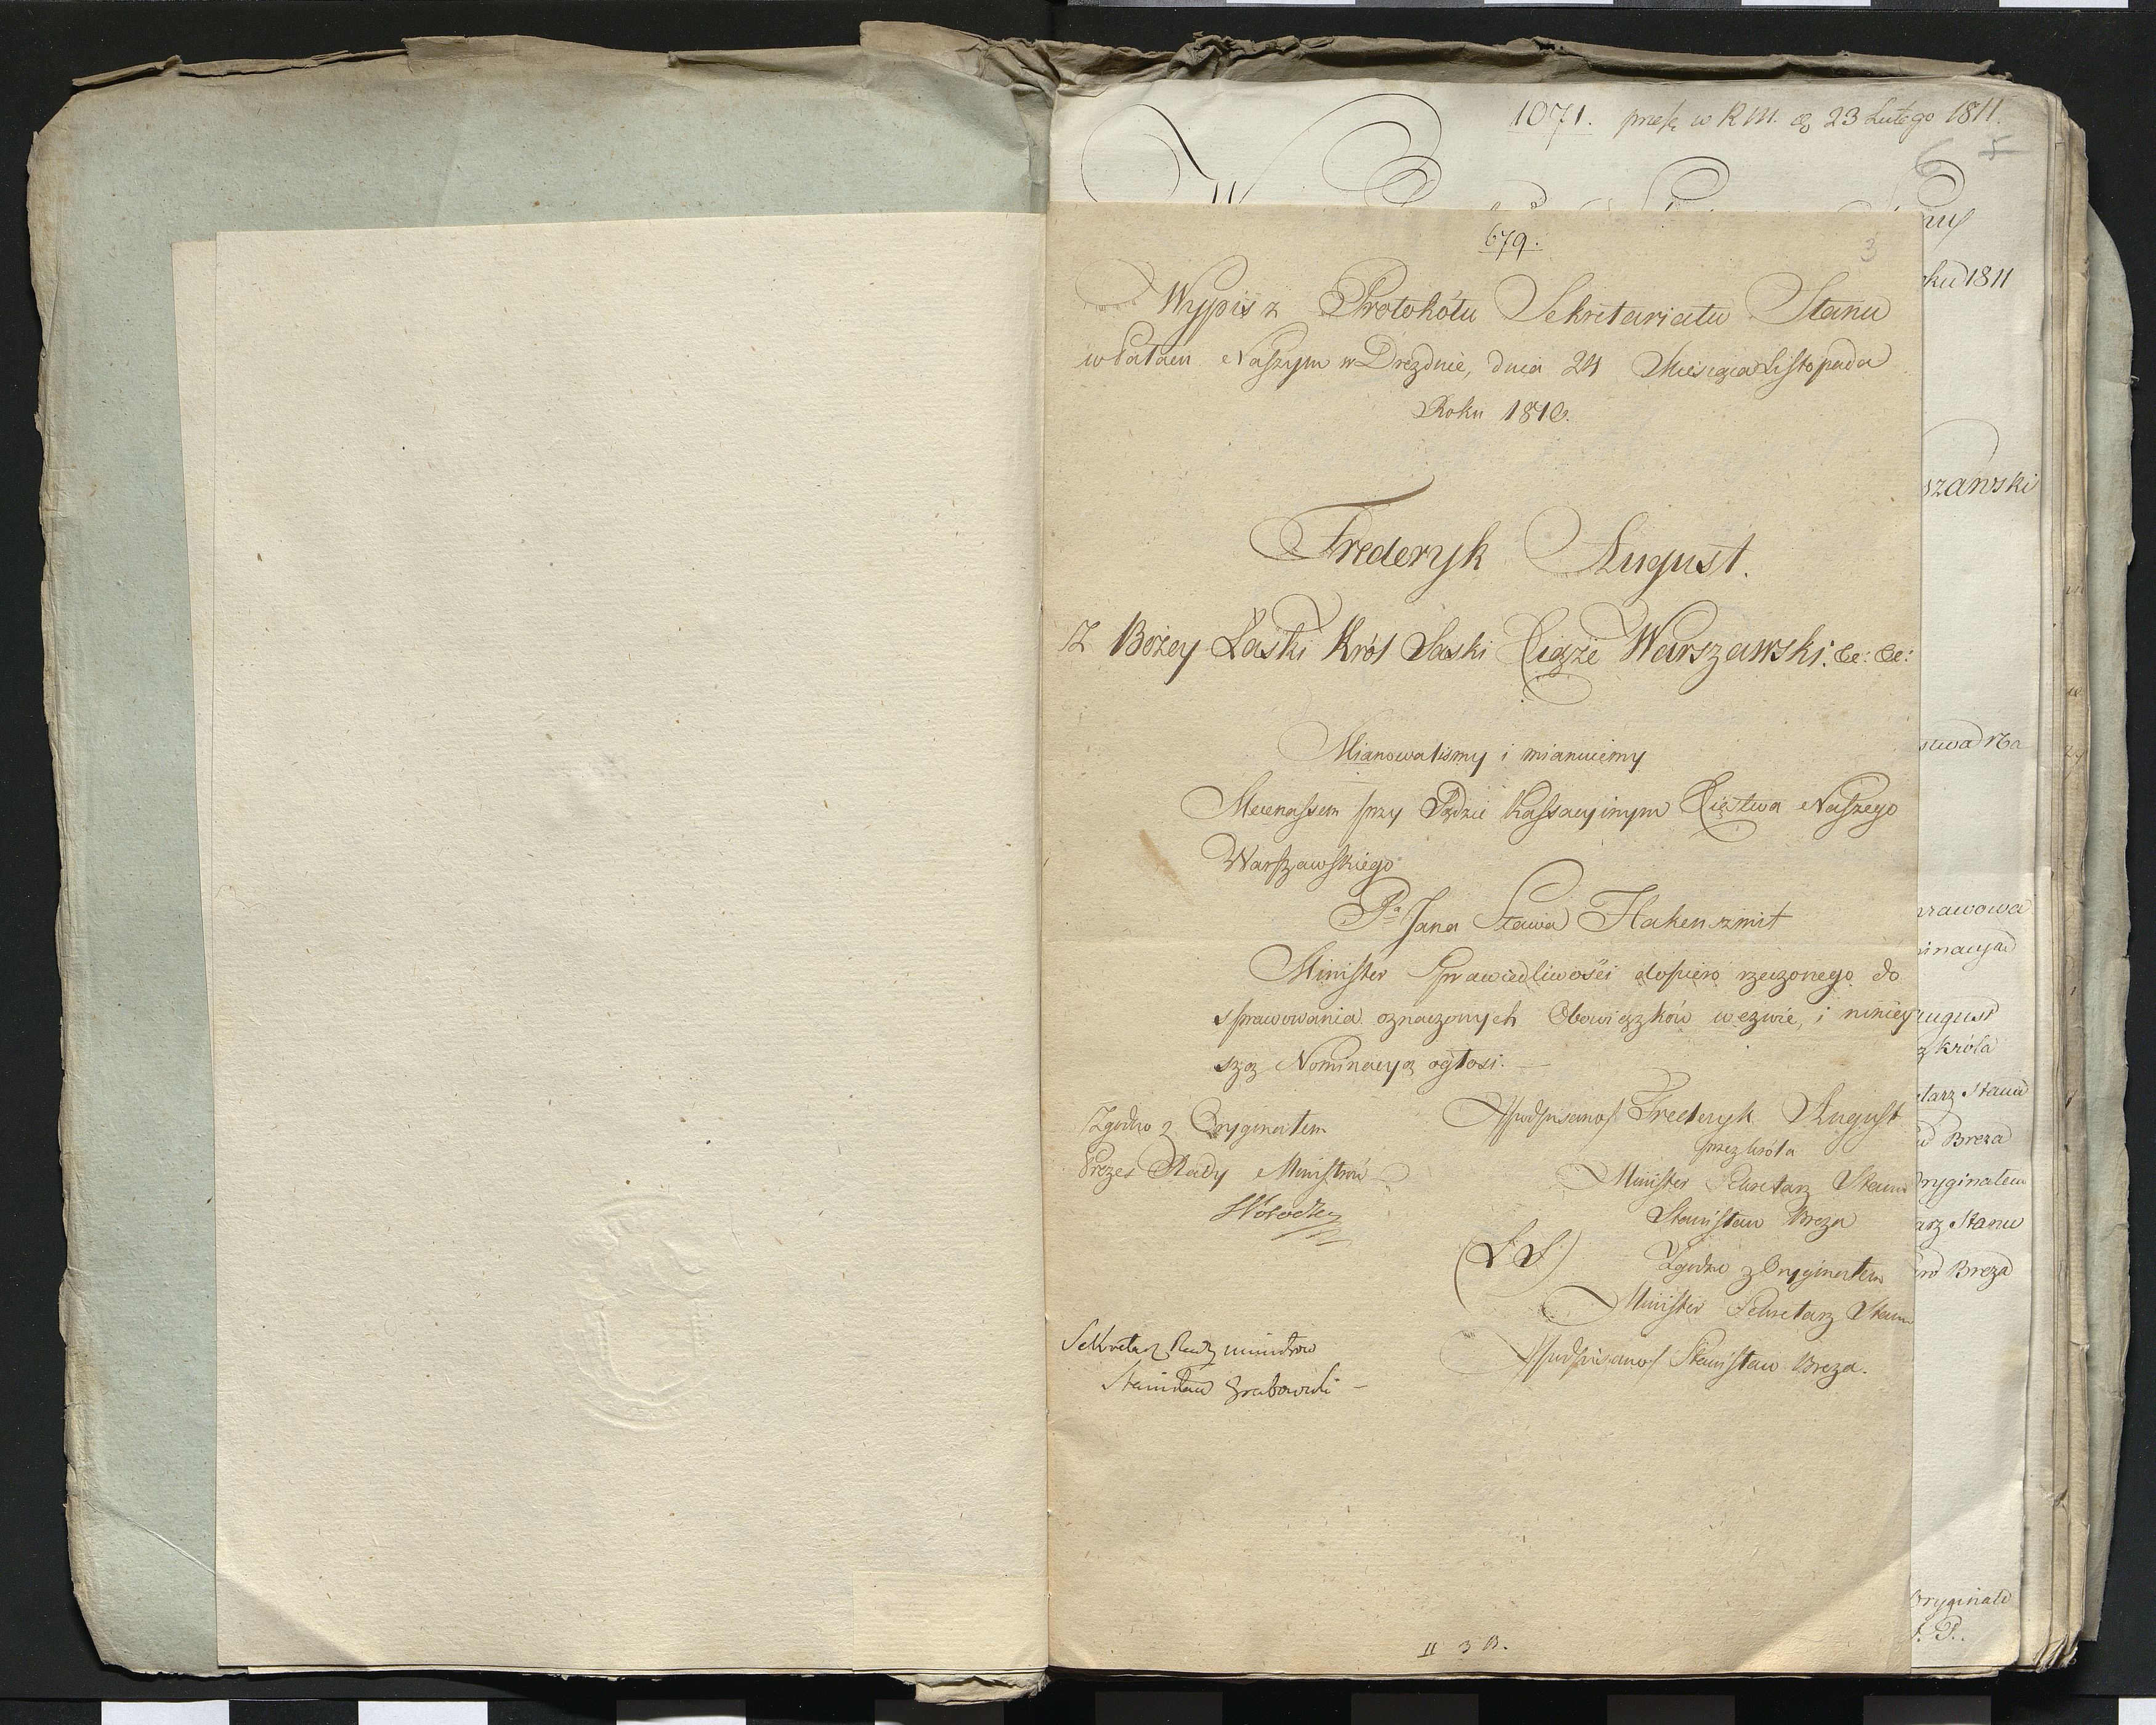 1071. w R M. 23 Lutego 1811.
6 5
ku 1811
679.
3
Wypis z Protokółu Sekretariatu Stanu
w Pałacu Naszym w Dreznie, dnia 24 Miesiąca Listopada
Roku 1810.
Frederyk August.
Z Bożey Łaski Król Saski Xiąże Warszawski. &c: &c:
Mianowaliśmy i mianuiemy
Mecenassem przy Sądzie Kassacyinym Xięstwa Naszego
Warszawskiego
Pa Jana Hakenszmit
Minister Sprawiedliwości dopiero rzeczonego do
sprawowania oznaczonych Obowiązków wezwie, i niniey
szą Nominacyą ogłosi. —
/podpisano/ Frederyk August
przez króla
Minister Sekretarz Stanu
Stanisław Breza
(L.S.) Zgodno z Oryginałem
Minister Sekretarz Stanu
/podpisano/ Stanisław Breza.
Zgodno z Oryginałem
Prezes Rady Ministrów
Sekretarz Rady ministrow
Stanisław Grabowski —
szawski
stwa
rawowa
inacyą
ugust
z króla
tarz Stanu
Breza
Oryginałem
arz Stanu
Breza
Oryginało
II 3 B.